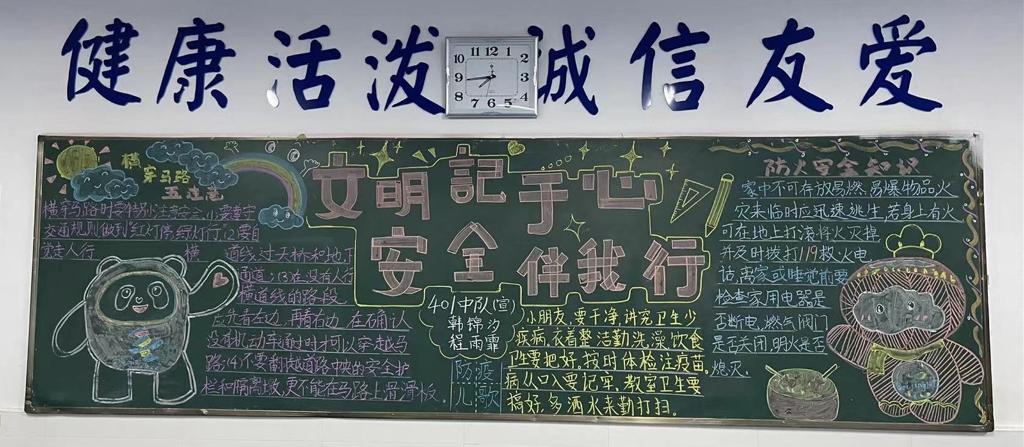 健康活泼 诚信友爱
12
11 1
10 2
9 3
8 4
7 5
6
横
穿马路
五注意
横穿马路时要特别注意安全,(1)要遵守
交通规则做到"红灯停绿灯行"(2)要自
觉走人行 横 道线,过天桥和地下
通道;(3)在没有人行
横道线的路段
应先看左边,再看右边,在确认
没有机动车通过时才可以穿越马
路;(4)不要翻越道路中央的安全护
栏和隔离墩,更不能在马路上滑滑板。
文明记于心
安全伴我行
401中队(宣)
韩锦夕
程雨霏
防疫
儿歌
小朋友,要干净,讲究卫生少
疾病,衣着整洁勤洗澡,饮食
卫生要把好。按时体检注疫苗,
病从口入要记牢。教室卫生要
搞好,多洒水来勤打扫。
防火安全知识
家中不可存放易燃、易爆物品火
灾来临时应迅速逃生,若身上有火
可在地上打滚将火灭掉
并及时拨打119救火电
话,离家或睡觉前要
检查家用电器是
否断电,燃气阀门
是否关闭,明火是否
熄灭.